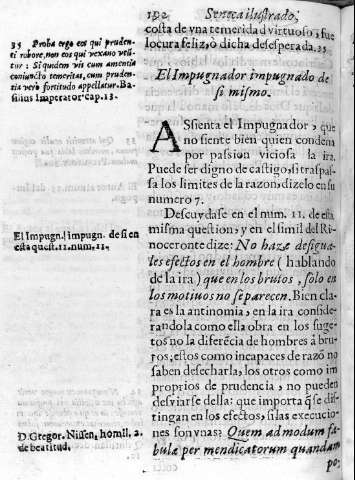 192 Seneca ilustrado,
costa de vna temerida d virtuoso, fue
locura feliz, ò dicha desesperada. 35
35 Proba ergo eos qui pruden-
ti robore, non eos qui vexano vtū-
tur: Siquidem vis cum amentia
coniuncta temeritas, cum pruden-
tia verò fortitudo appellatur. Ba-
silius Imperator cap. 13.
El Impugnador impugnado de
si mismo.
ASsienta el Impugnador, que
no siente bien quien condena
por passion viciosa la ira.
Puede ser digno de castigo, si traspas-
sa los limites de la razon, dizelo en su
numero 7.
Descuydase en el num. 11. de esta
misma question, y en el simil del Ri-
noceronte dize: No haze desigua-
les efectos en el hombre (hablando
de la ira) que en los brutos, solo en
los motiuos no se parecen. Bien cla-
ra es la antinomia, en la ira conside-
randola como ella obra en los suge-
tos no la diferēcia de hombres à bru-
tos; estos como incapaces de razō no
saben desecharla, los otros como im
proprios de prudencia, no pueden
desviarse della: que importa q̄ se dis-
tingan en los efectos, si las execucio-
nes son vnas? Quem admodum fa-
bula per mendicatorum quandam
po-
El Impugn. impugn. de si en
esta quest. 11. num. 11.
D. Gregor. Nissen, homil. 2.
de beatitud.